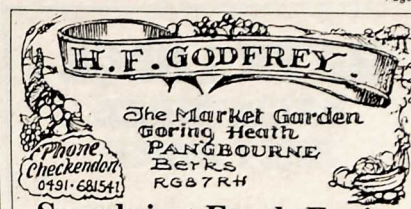 H. F. GODFREY.
The Market Garden
Goring Heath
PANGBOURNE
Berks
RG8 7RH
Phone
Checkendon
0491-681541